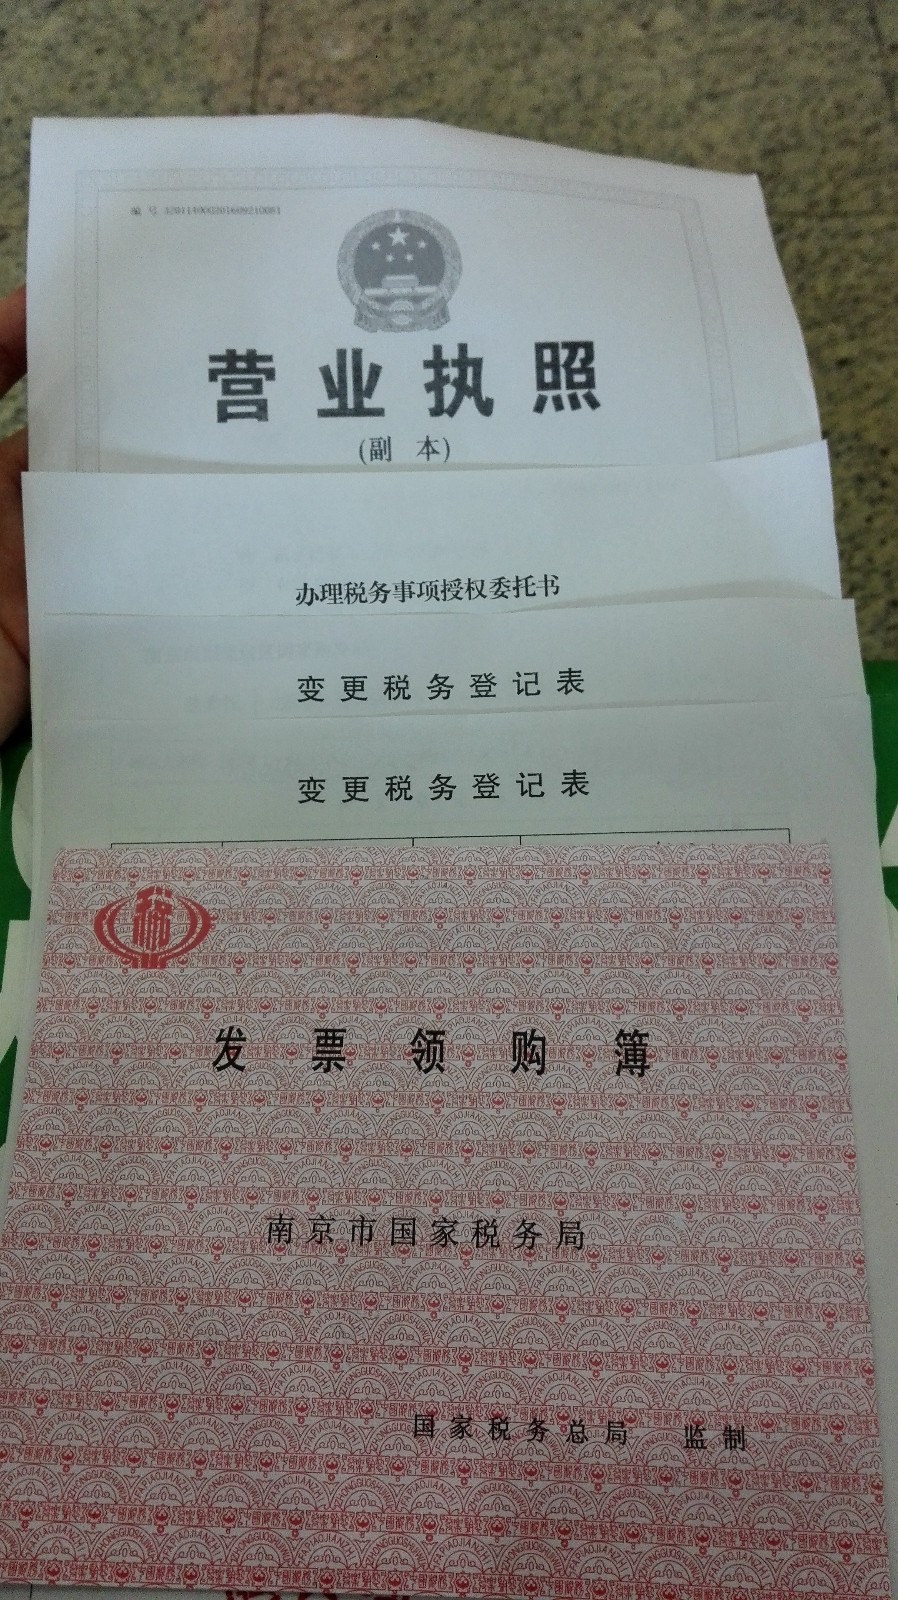 编号 320114000201609210081
营业执照
(副 本)
办理税务事项授权委托书
变更税务登记表
变更税务登记表
税
发票领购簿
南京市国家税务局
国家税务总局 监制